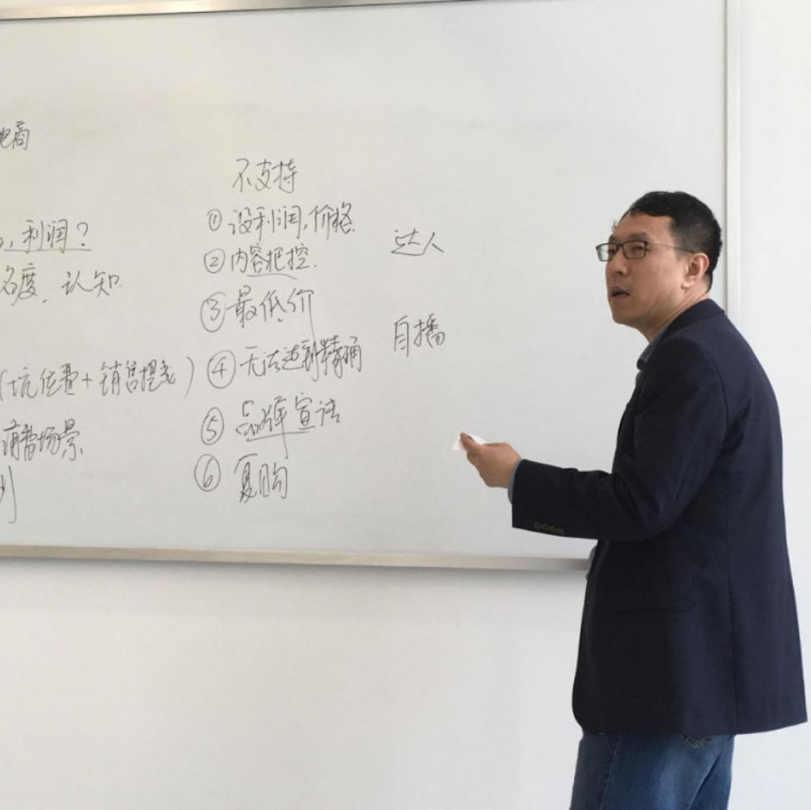 电商
利润？
名度、认知
(坑位费+销售提成)
消费场景
不支持
①没利润,价格
②内容把控.
③最低价
④无法达到精确
⑤品牌宣传
⑥复购
达人
自播